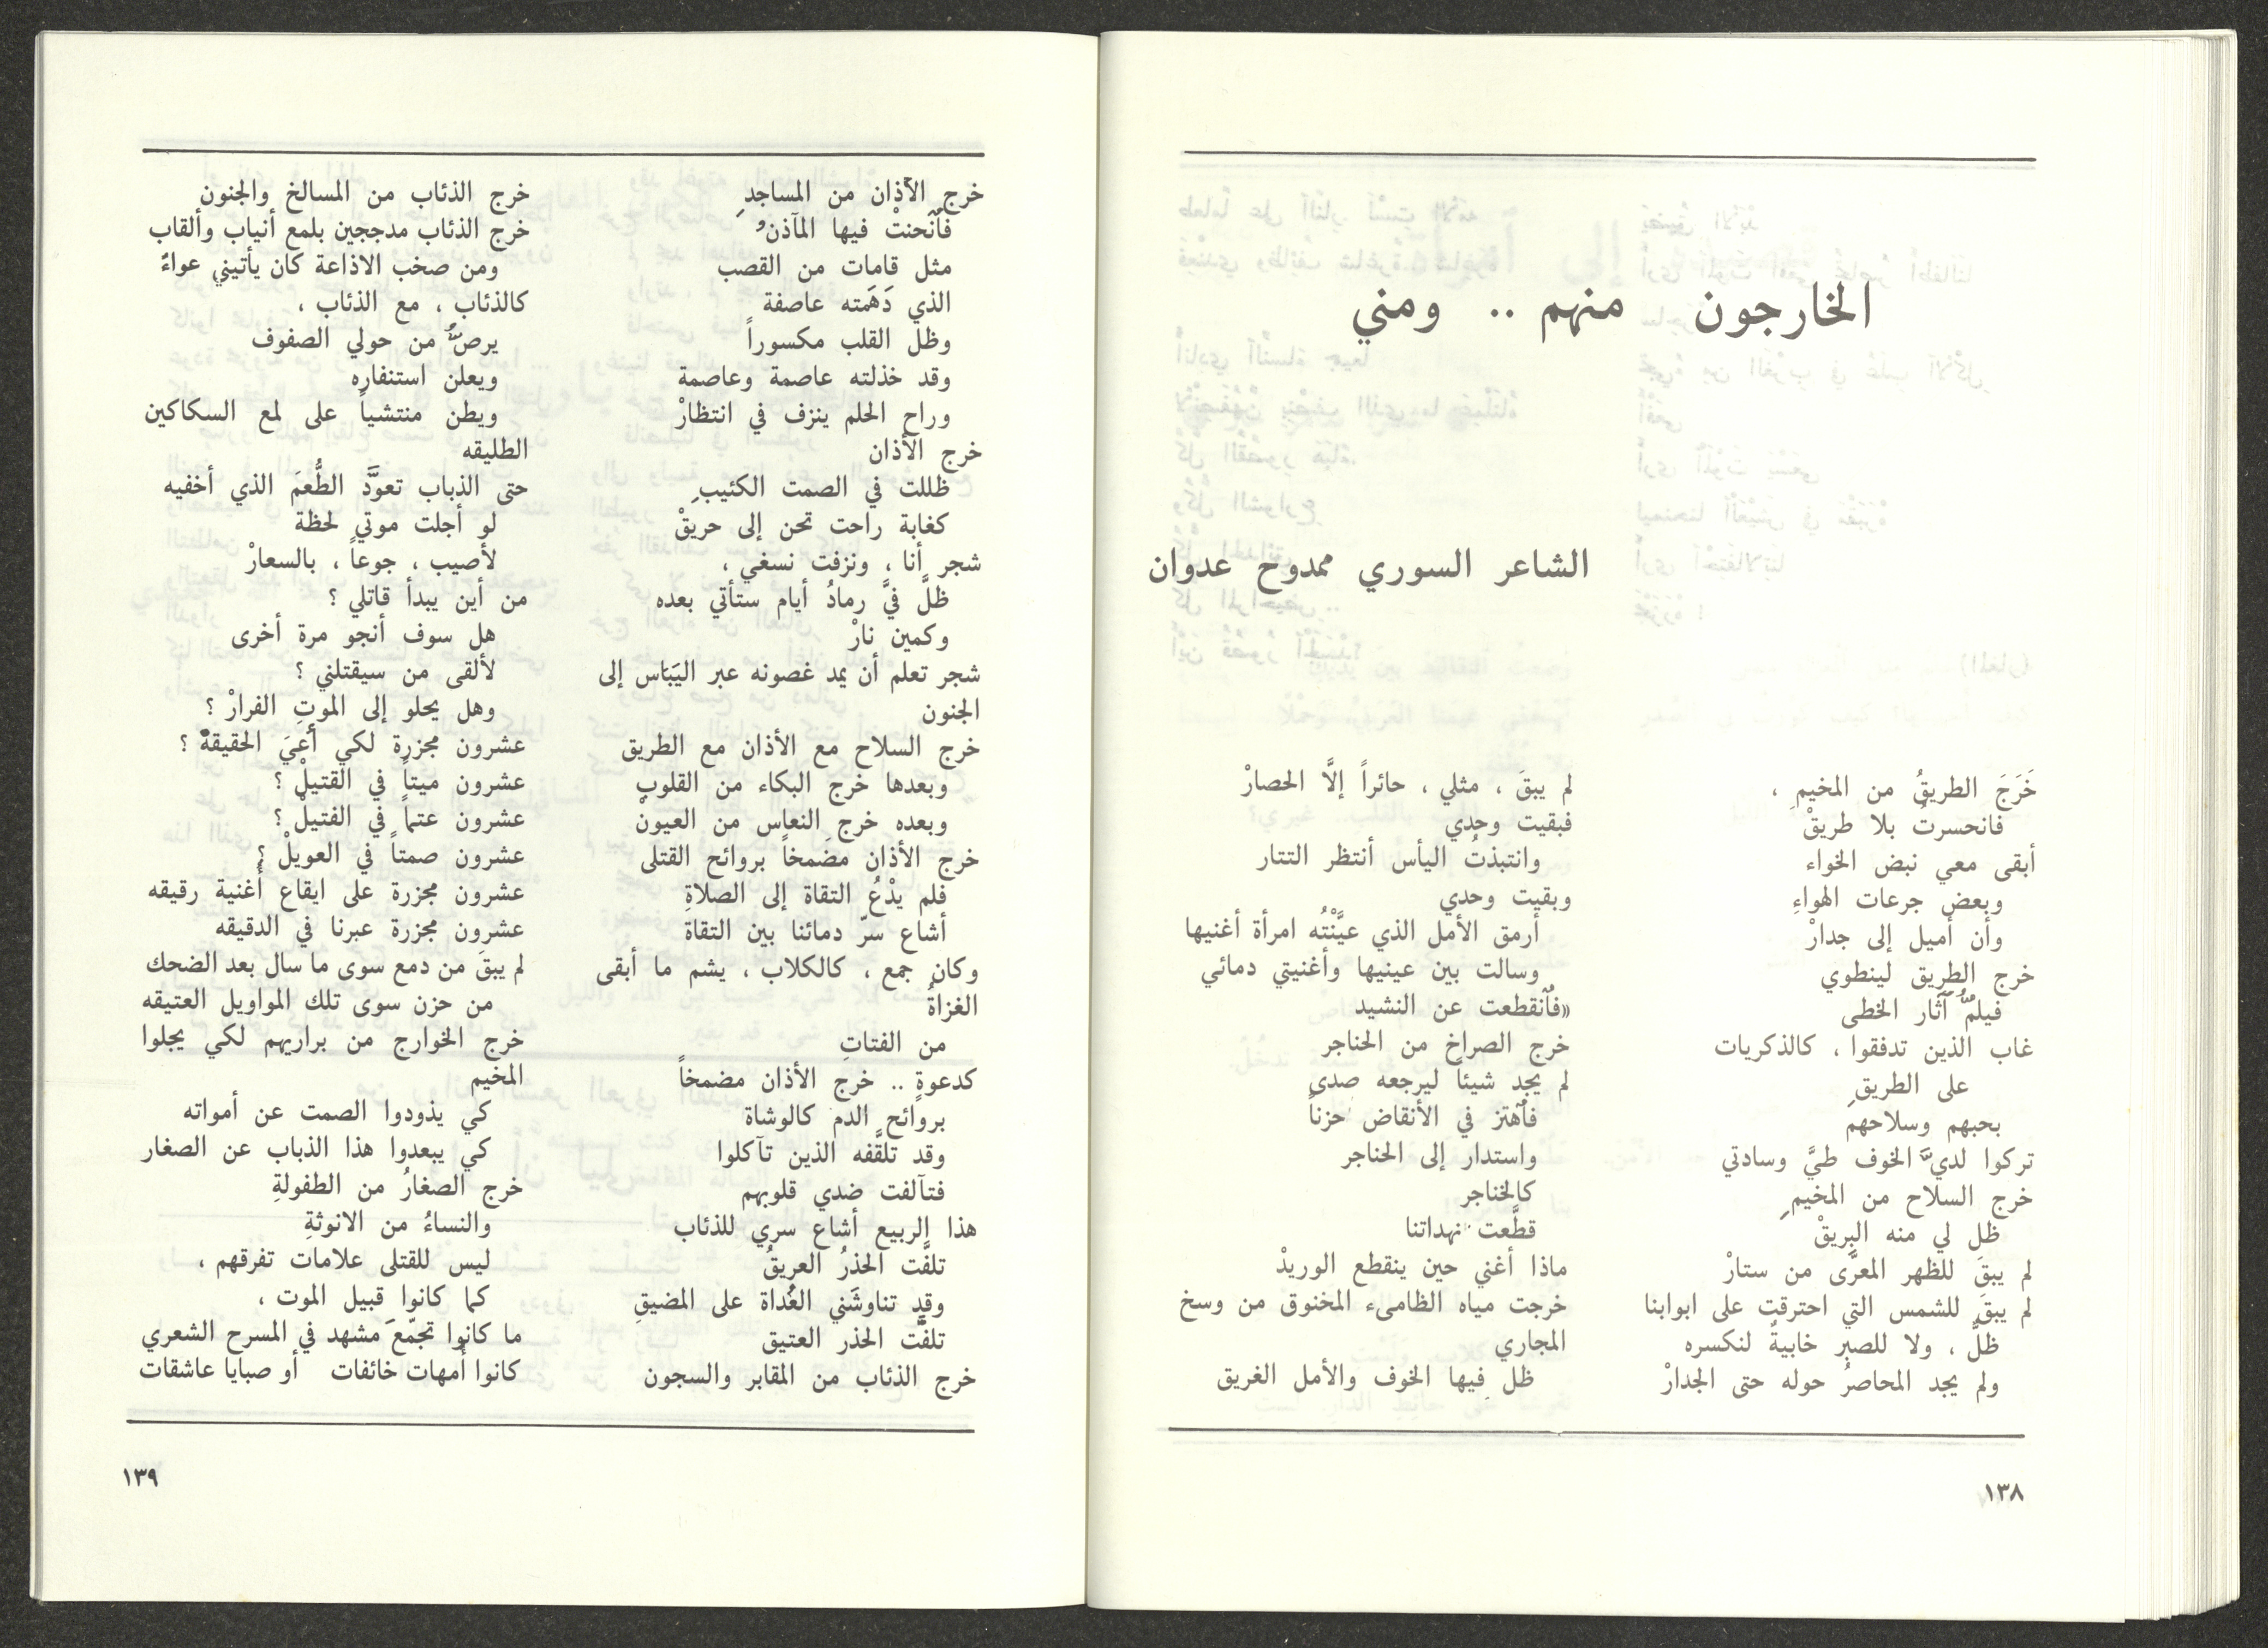 الخارجون منهم .. ومني
الشاعر السوري ممدوح عدوان
خَرَجَ الطريقُ من المخيمِ ،
فانحسرتُ بلا طريقْ
أبقى معي نبض الخواء
وبعض جرعات الهواءِ
وأن أميل إلى جدارْ
خرج الطريق لينطوي
فيلمُّ آثار الخطى
غاب الذين تدفقوا ، كالذكريات
على الطريقِ
بحبهم وسلاحهم
تركوا لديَّ الخوف طيَّ وسادتي
خرج السلاح من المخيمِ
ظل لي منه البريقْ
لم يبقَ للظهر المعرَّى من ستارْ
لم يبقَ للشمس التي احترقت على ابوابنا
ظلٌّ ، ولا للصبر خابيةٌ لنكسره
ولم يجد المحاصرُ حوله حتى الجدارْ
لم يبقَ ، مثلي ، حائراً إلَّا الحصارْ
فبقيت وحدي
وانتبذتُ اليأس أنتظر التتار
وبقيت وحدي
أرمق الأمل الذي عيَّنْتُه امرأة أغنيها
وسالت بين عينيها وأغنيتي دمائي
«فٱنقطعت عن النشيد
خرج الصراخ من الحناجر
لم يجد شيئاً ليرجعه صدى
فٱهتز في الأنقاض حزناً
واستدار إلى الحناجر
كالخناجر
قطَّعت نهداتنا
ماذا أغني حين ينقطع الوريدْ
خرجت مياه الظامىء المخنوق من وسخ
المجاري
ظل فيها الخوف والأمل الغريق
١٣٨
خرج الآذان من المساجدِ
فٱنحنتْ فيها المآذنُ
مثل قامات من القصب
الذي دَهَمته عاصفة
وظل القلب مكسوراً
وقد خذلته عاصمة وعاصمة
وراح الحلم ينزف في انتظارْ
خرج الأذان
ظللت في الصمت الكئيبِ
كغابة راحت تحن إلى حريقْ
شجر أنا ، ونزفت نسغي ،
ظلَّ فيَّ رمادُ أيام ستأتي بعده
وكمين نارْ
شجر تعلم أن يمد غصونه عبر اليَبَاس إلى
الجنون
خرج السلاح مع الأذان مع الطريق
وبعدها خرج البكاء من القلوب
وبعده خرج النعاس من العيونْ
خرج الأذان مضمخاً بروائح القتلى
فلم يدْعُ التقاة إلى الصلاةِ
أشاع سرّ دمائنا بين التقاة
وكان جمع ، كالكلاب ، يشم ما أبقى
الغزاةُ
من الفتاتِ
كدعوةٍ .. خرج الأذان مضمخاً
بروائح الدم كالوشاة
وقد تلقَّفه الذين تآكلوا
فتآلفت ضدي قلوبهم
هذا الربيع أشاع سري للذئاب
تلفَّت الحذرُ العريقُ
وقد تناوشَني الغُداة على المضيقِ
تلفَّت الحذر العتيق
خرج الذئاب من المقابر والسجون
خرج الذئاب من المسالخ والجنون
خرج الذئاب مدججين بلمع أنياب وألقاب
ومن صخب الاذاعة كان يأتيني عواءٌ
كالذئاب ، مع الذئاب ،
يرصُّ من حولي الصفوف
ويعلن استنفاره
ويطن منتشياً على لمع السكاكين
الطليقه
حتى الذباب تعودَّ الطُّعمَ الذي أخفيه
لو أجلت موتي لحظة
لأصيب ، جوعاً ، بالسعارْ
من أين يبدأ قاتلي ؟
هل سوف أنجو مرة أخرى
لألقى من سيقتلني ؟
وهل يحلو إلى الموتِ الفرارْ ؟
عشرون مجزرة لكي أعيَ الحقيقةْ ؟
عشرون ميتاً في القتيلْ ؟
عشرون عتماً في الفتيلْ ؟
عشرون صمتاً في العويلْ ؟
عشرون مجزرة على ايقاع أغنية رقيقه
عشرون مجزرة عبرنا في الدقيقه
لم يبقَ من دمع سوى ما سال بعد الضحك
من حزن سوى تلك المواويل العتيقه
خرج الخوارج من براريهم لكي يجلوا
المخيم
كي يذودوا الصمت عن أمواته
كي يبعدوا هذا الذباب عن الصغار
خرج الصغارُ من الطفولةِ
والنساءُ من الانوثةِ
ليس للقتلى علامات تفرقهم ،
كما كانوا قبيل الموت ،
ما كانوا تجمّعَ مشهد في المسرح الشعري
كانوا أمهات خائفات أو صبايا عاشقات
١٣٩